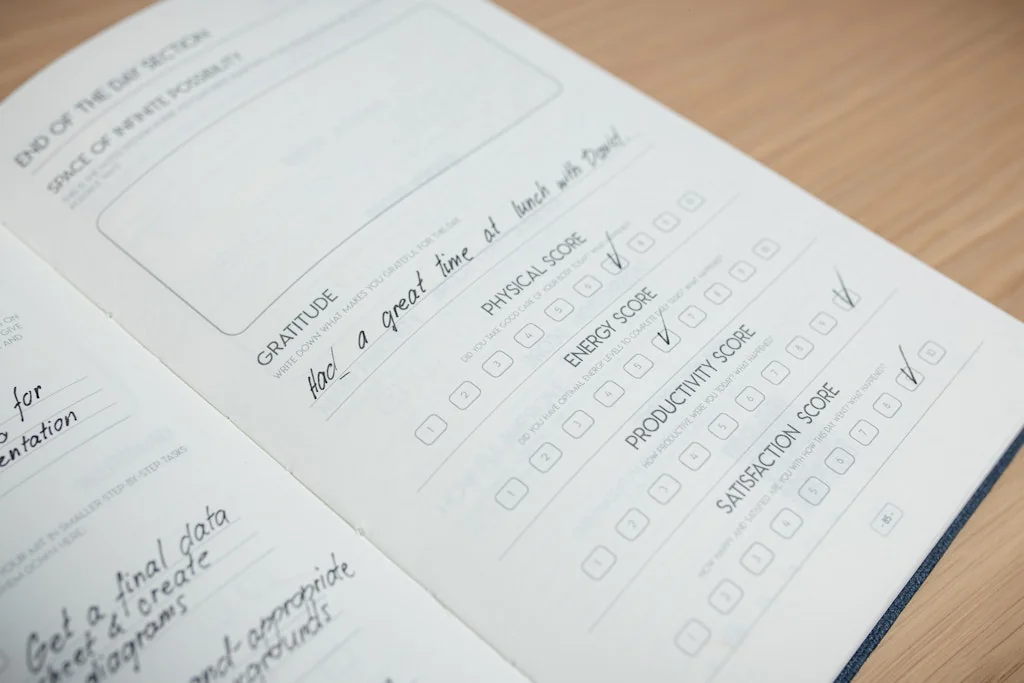 ON
GIVE
AND
for
entation
OUR MIT IN SMALLER STEP-BY-STEP TASKS
THEM DOWN HERE:
Get a final data
sheet & create
diagrams
and-appropriate
END OF THE DAY SECTION
SPACE OF INFINITE POSSIBILITY
GRATITUDE
WRITE DOWN WHAT MAKES YOU GRATEFUL FOR THE DAY
Had a great time at lunch with David.
PHYSICAL SCORE
DID YOU TAKE GOOD CARE OF YOUR BODY TODAY?
1 2 3 4 5 6 8 9 10
ENERGY SCORE
DID YOU HAVE OPTIMAL ENERGY LEVELS TO COMPLETE TASKS? WHAT HAPPENED?
1 2 3 4 5 7 8 9 10
PRODUCTIVITY SCORE
HOW PRODUCTIVE WERE YOU TODAY? WHAT HAPPENED?
1 2 3 4 5 6 7 8 9
SATISFACTION SCORE
HOW HAPPY AND SATISFIED ARE YOU WITH HOW THIS DAY WENT? WHAT HAPPENED?
1 2 3 4 5 6 7 8 10